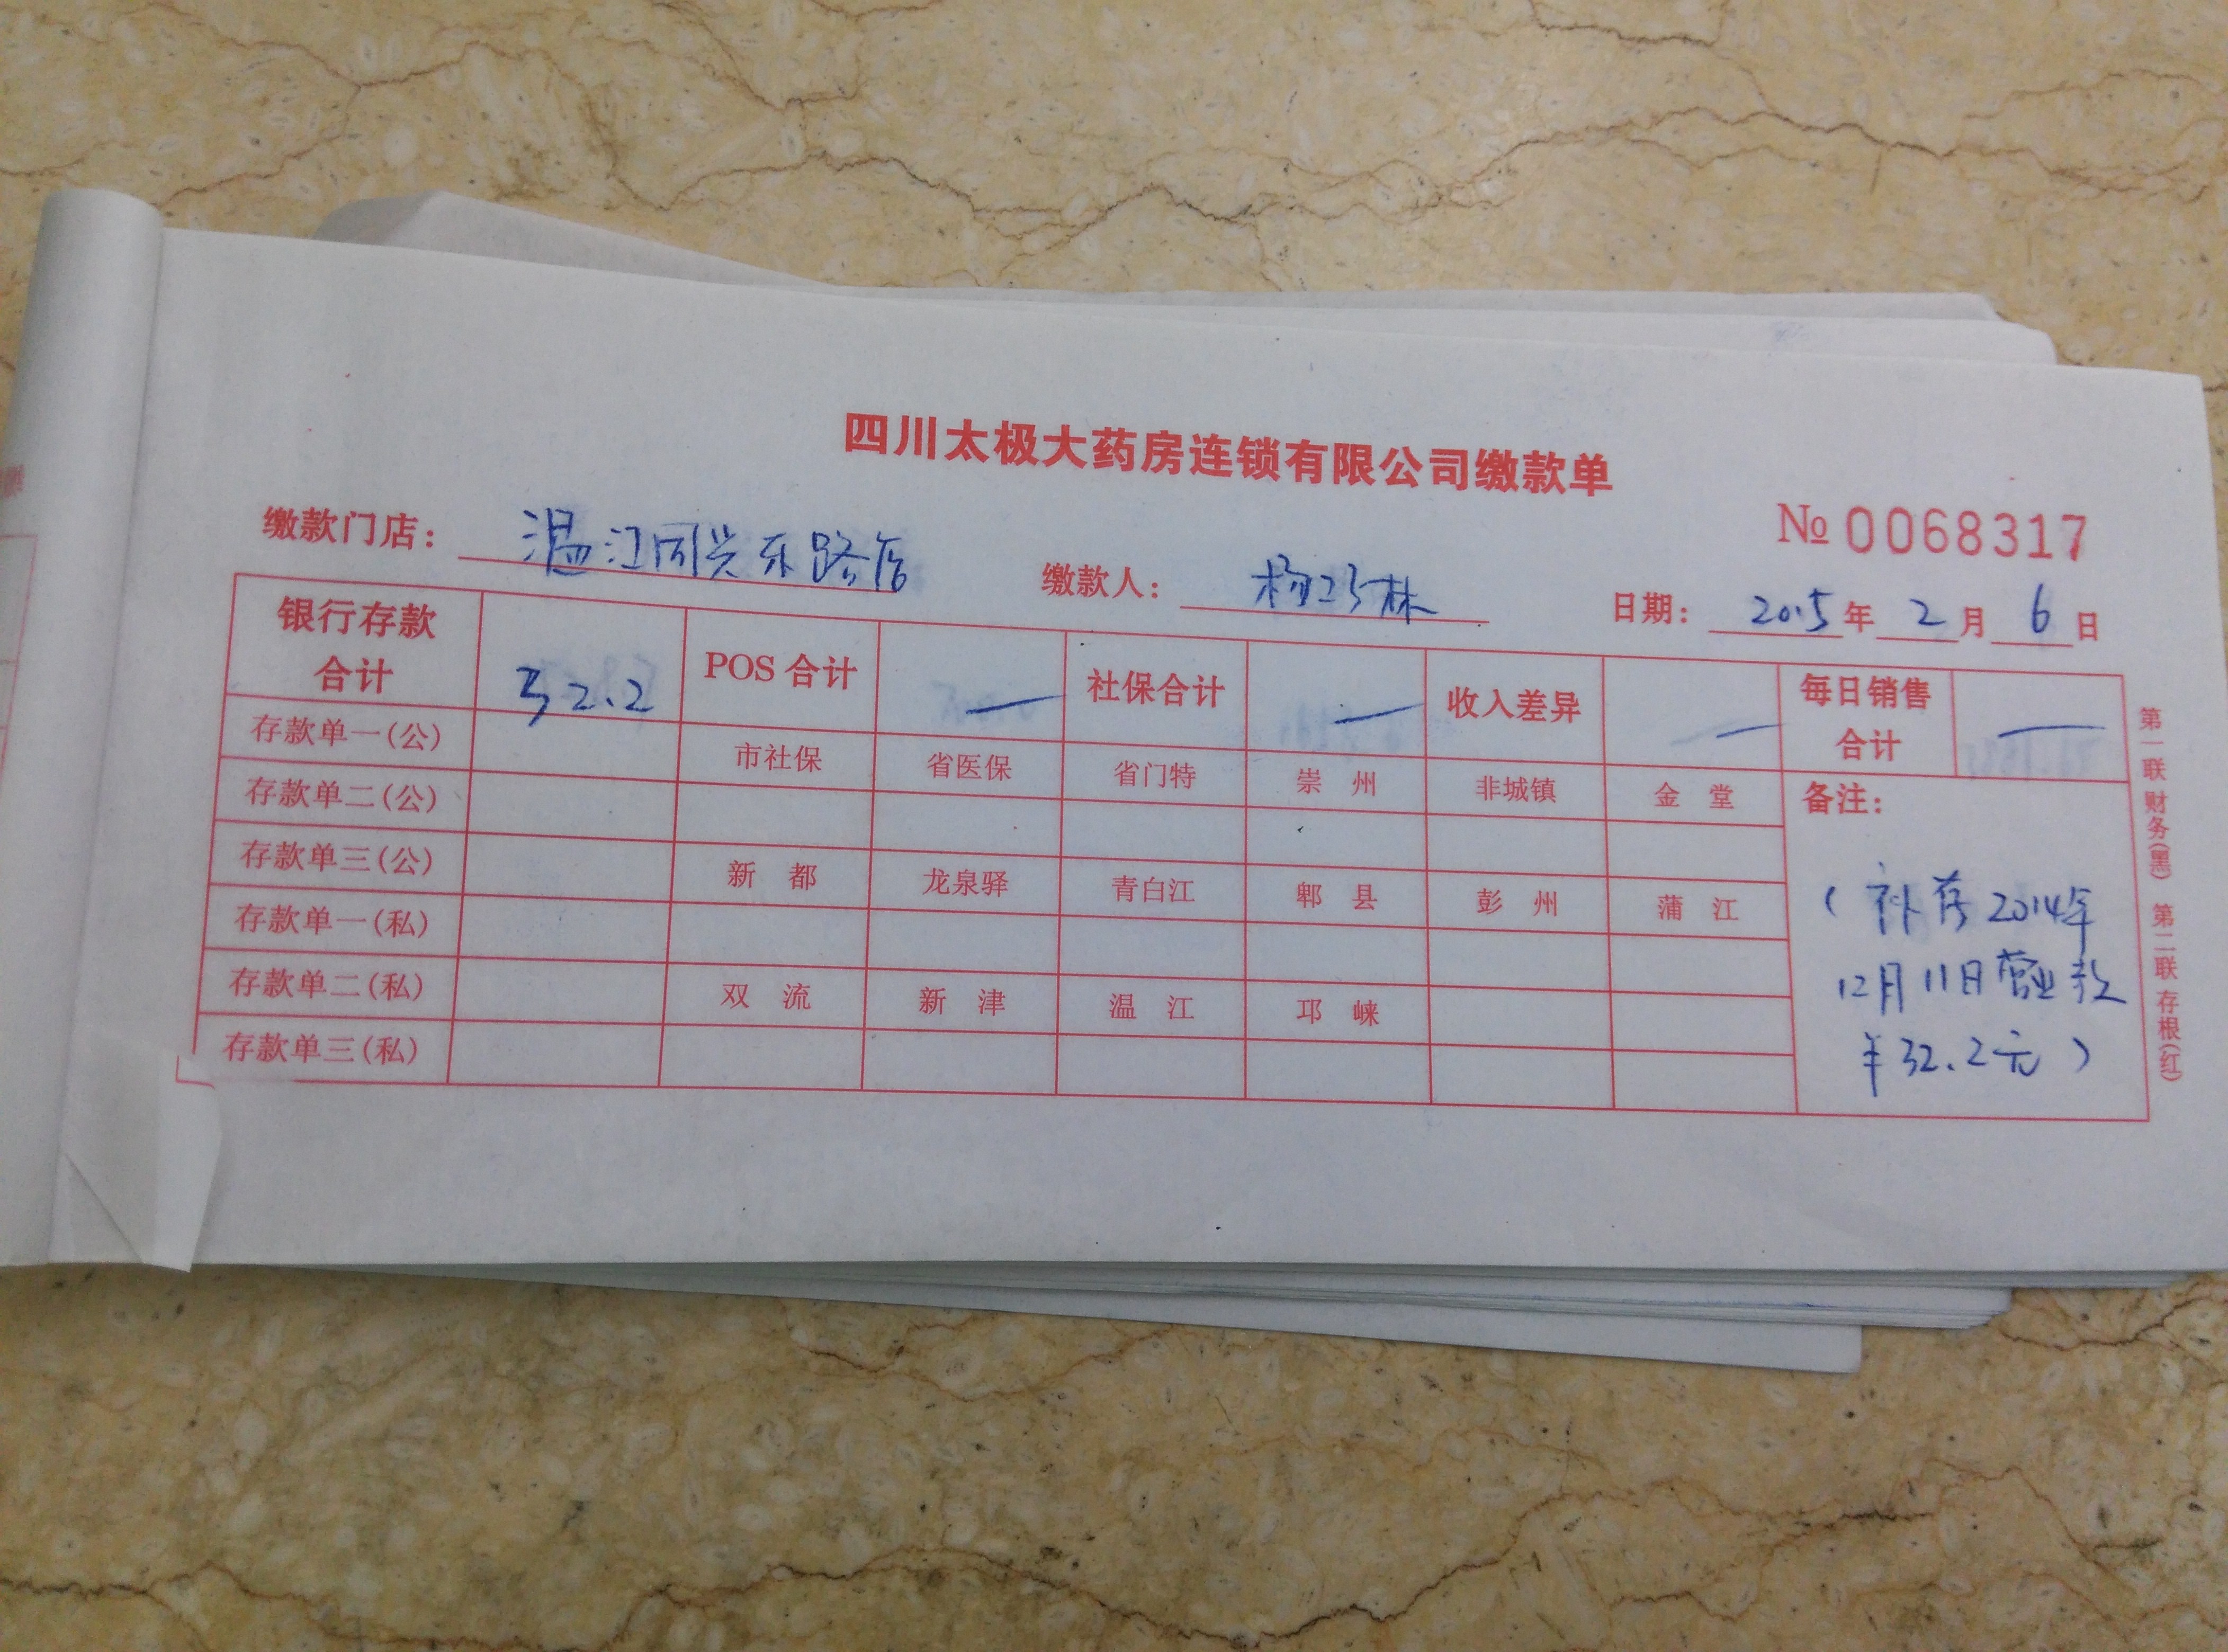 四川太极大药房连锁有限公司缴款单
№ 0068317
缴款门店： 温江同兴东路店
缴款人： 杨 林
日期： 2015年 2月 6日
银行存款合计 32.2 POS 合计 — 社保合计 — 收入差异 — 每日销售合计 —
存款单一(公) 市社保 省医保 省门特 崇 州 非城镇 金 堂
备注：
存款单二(公)
存款单三(公) 新 都 龙泉驿 青白江 郫 县 彭 州 蒲 江
存款单一(私)
存款单二(私) 双 流 新 津 温 江 邛 崃
存款单三(私)
( 补存2014年
12月11日营业款
¥32.2元 )
第一联 财务(黑) 第二联 存根(红)